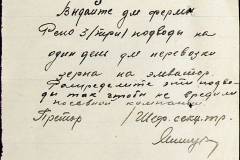 Выдайте для фермы
Фоло 3/три/ подводы на
один день для перевозки
зерна на элеватор.
Распределите эти подво-
ды так чтобы не вредили
посевной компании
Претор /Шеф. секр.тр.